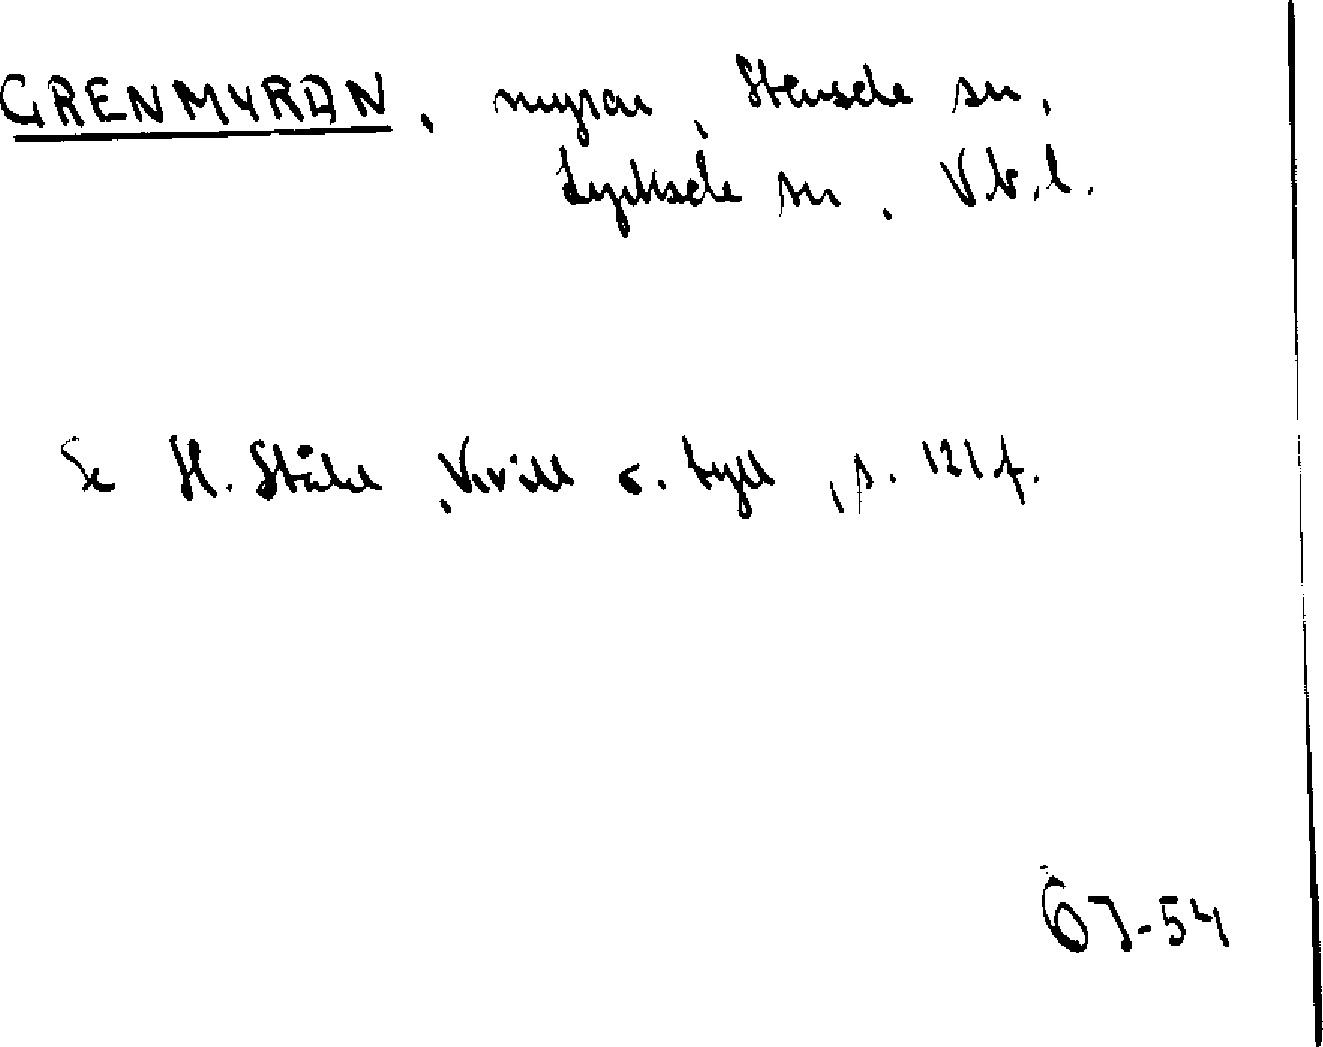 GRENMYRAN, myrar, Stensele sn,
Lycksele sn, Vb. l.
Se H. Ståhl, Kvill o. tyll, s. 121 f.
67-54